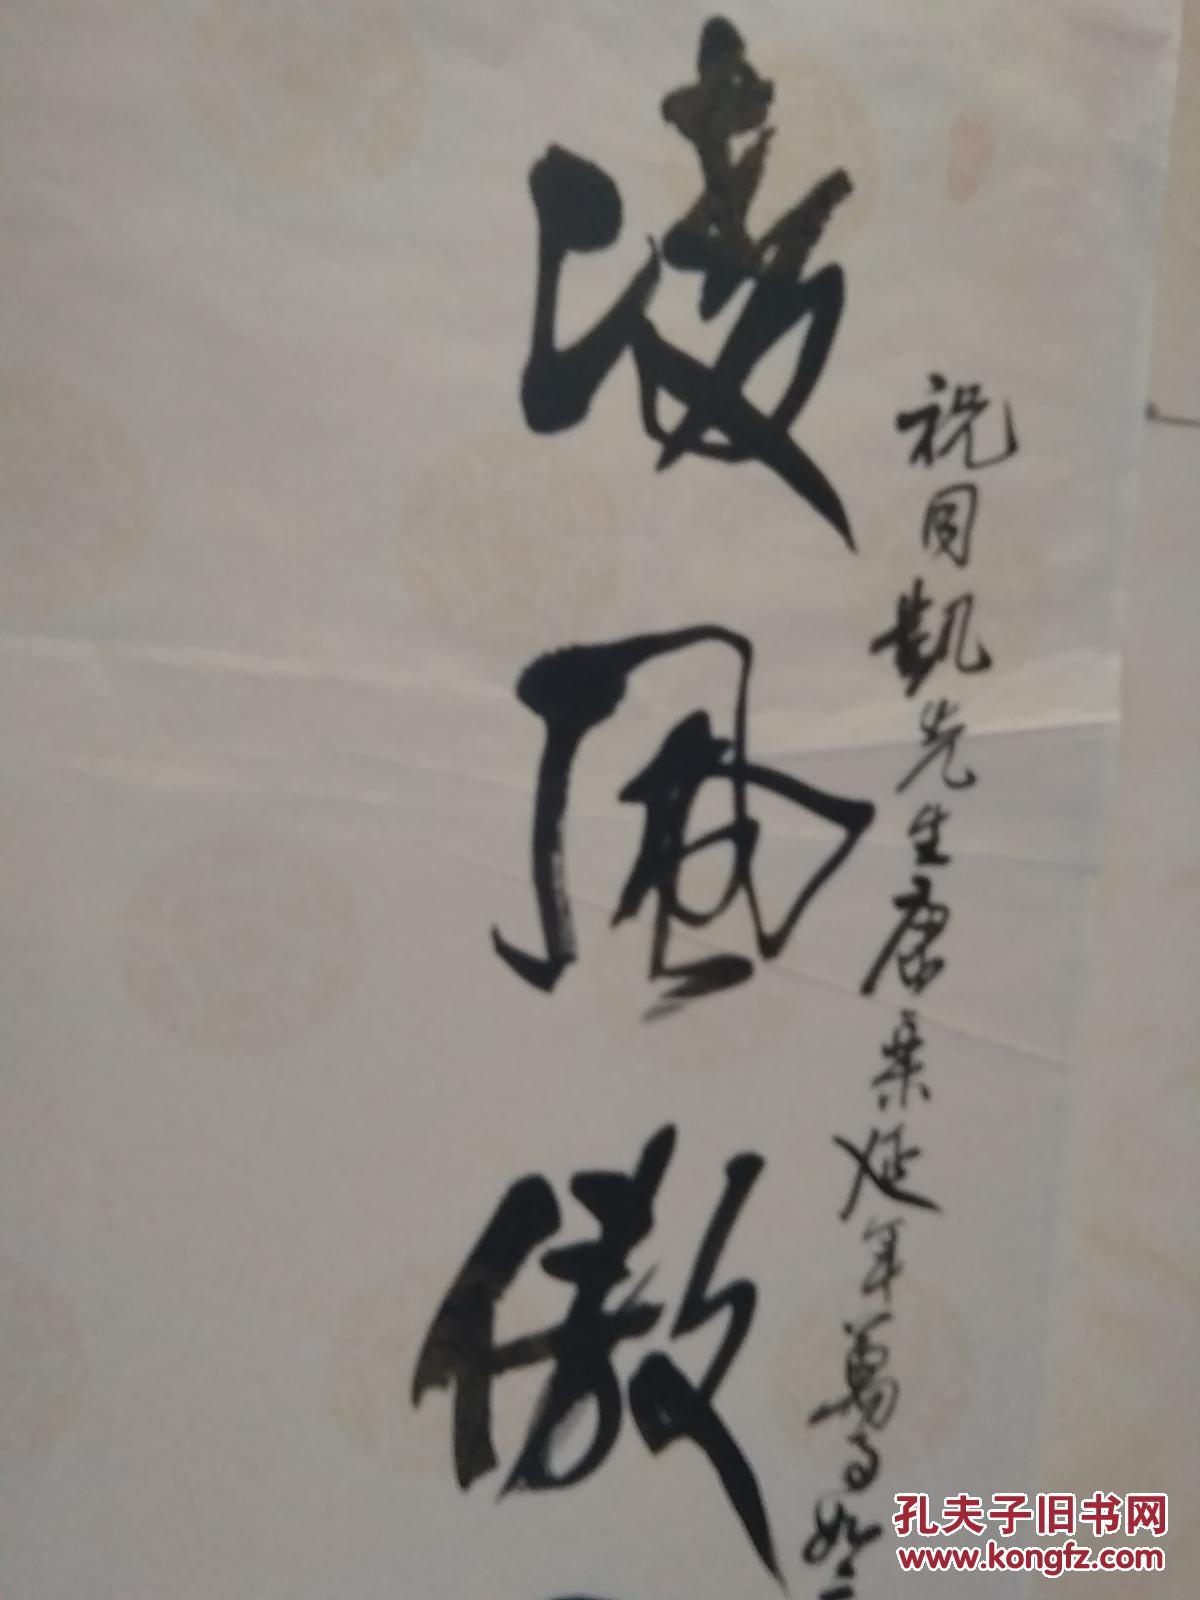 祝同凯先生康乐延年万事如
凌风傲
孔夫子旧书网
www.kongfz.com